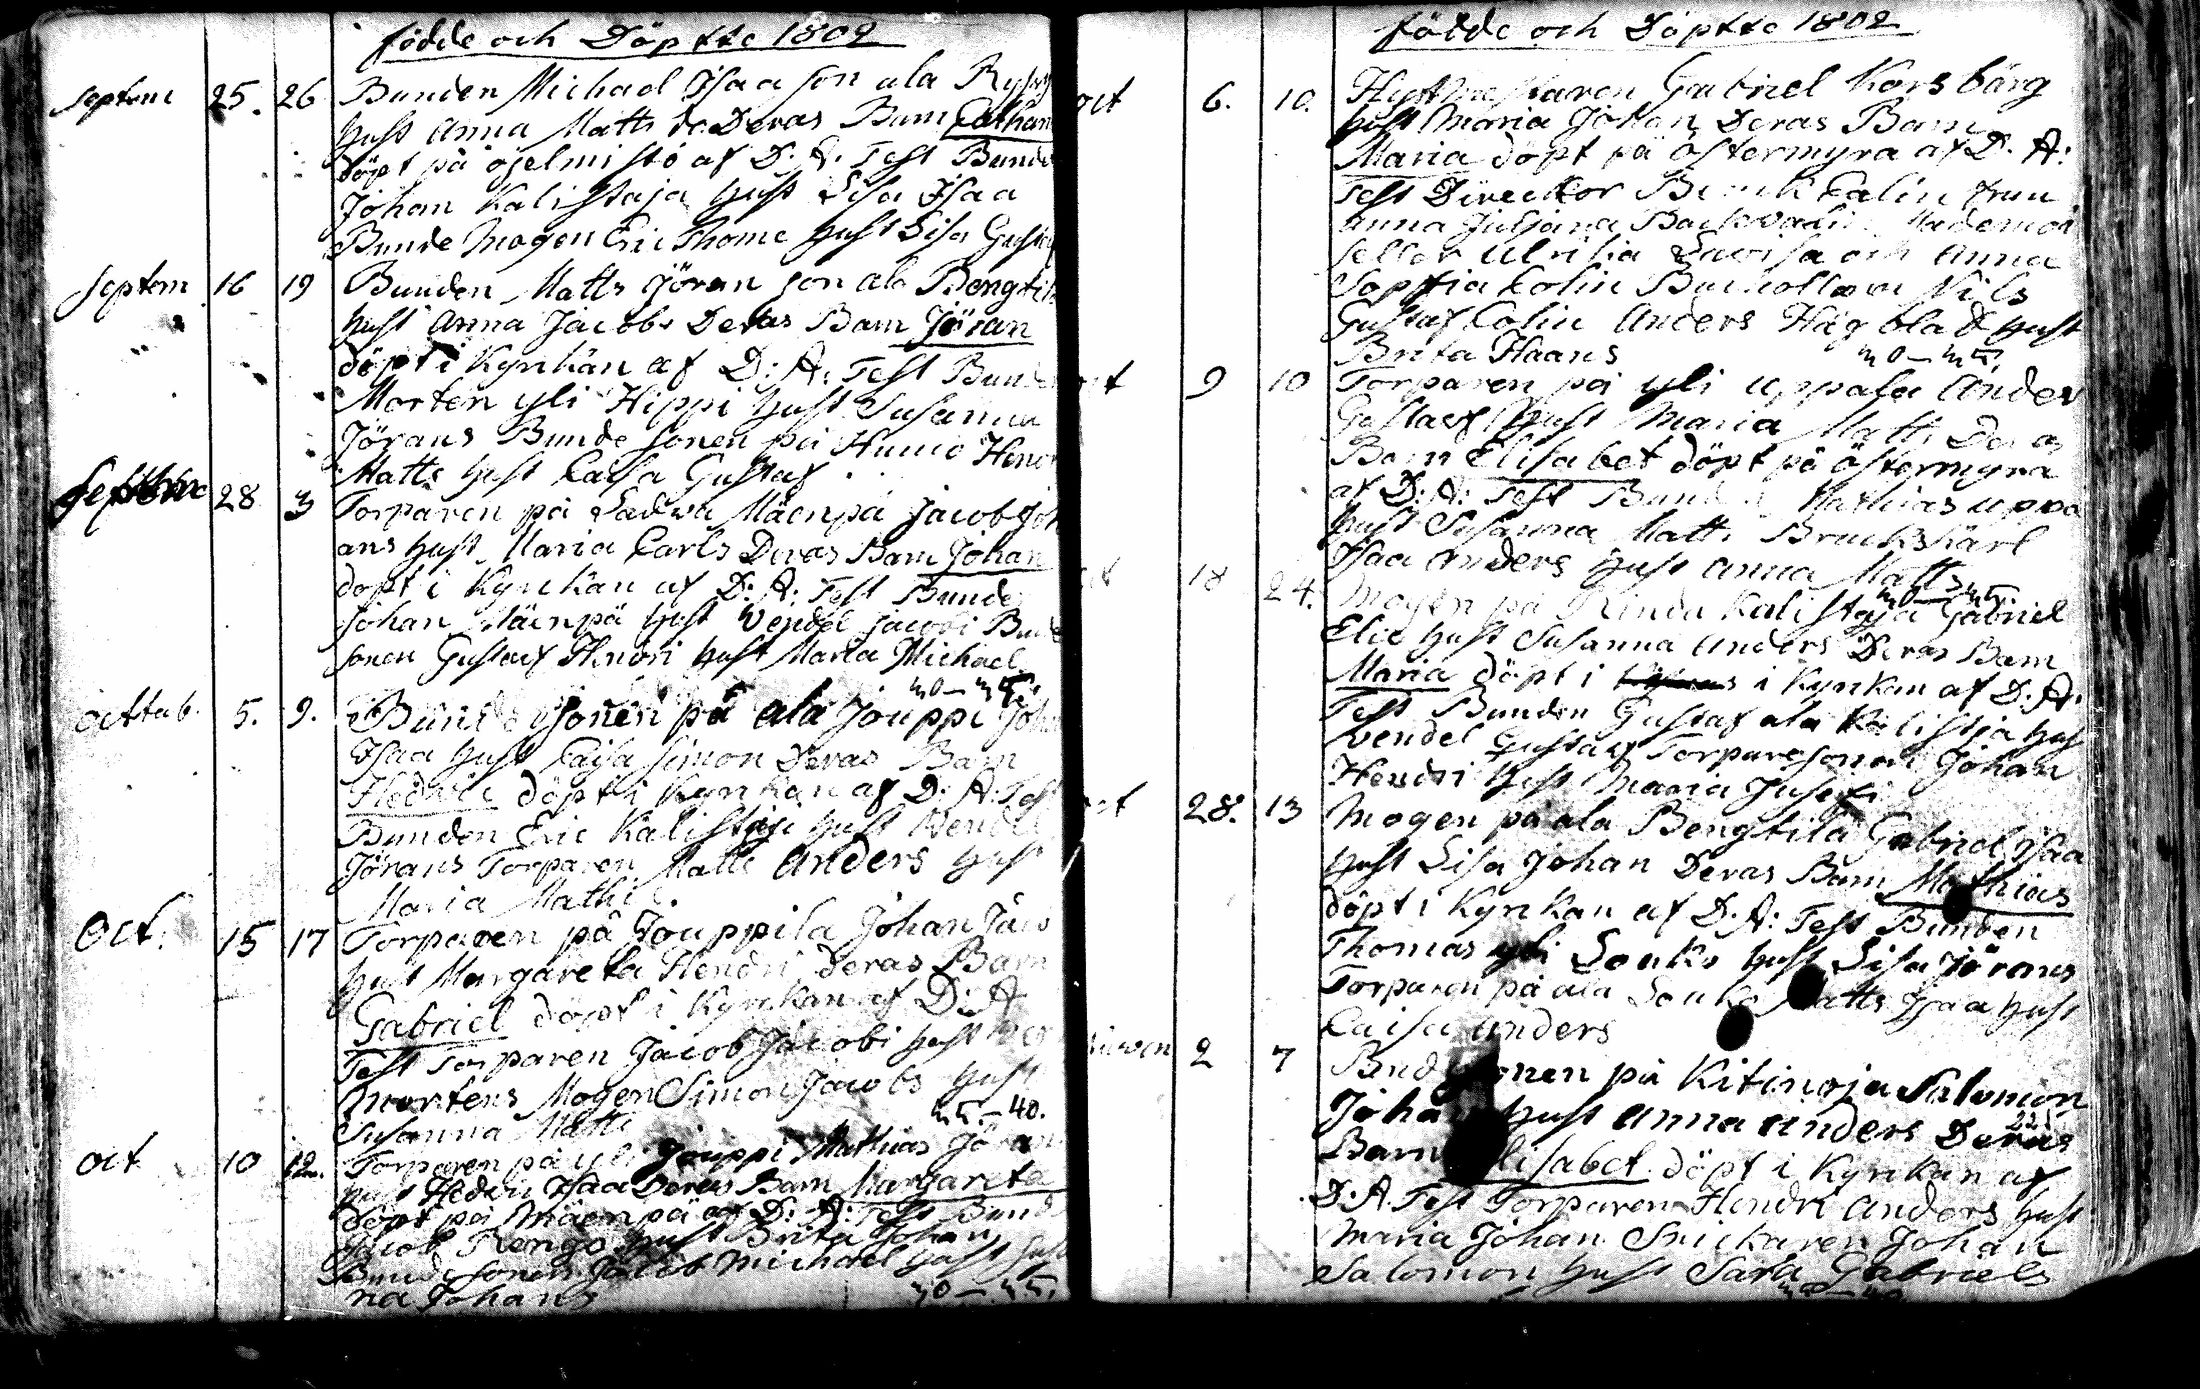 födde och Döptte 1802
septem 25. 26 Bunden Michael Isaa son ala
hust Anna Matts do Deras Barn Cathar
döpt på öjelmistö af D. A. Test Bunde
Johan Kalistaja hust Lisa Isaa
Bunde Mogen Eric Thome hust Lisa Gustaf
septem 16 19 Bunden Matts Jöran son ala Bengtil
hust Anna Jacobs Deras Barn Jöran
döpt i Kyrkan af D: A: Test Bund
Morten yli Hippi hust Susanna
Jörans Bunde sonen på Hend
Matts hust Caisa Gustaf
Septem 28 3 Torparen på Mäenpä Jacob Joh
ans hust Maria Carls Deras Barn Johan
döpt i Kyrkan af D: A: Test Bunde
Johan Mäenpä hust Wendel Jacobi Bunde
sonen Gustaf Hendri hust Maria Michael
octtob. 5. 9. Bunde sonen på ala Jouppi Joha
Isaa hust Caisa Simon Deras Barn
Hedvic döpt i Kyrkan af D: A: Test
Bunden Eric Kalistaja hust Wendel
Jörans Torparen Matts Anders hust
Maria Mathi
Oct. 15 17 Torparen på Jouppila Johan Jaco
hust Margareta Hendri Deras Barn
Gabriel döpt i Kyrkan af D: A
Test Torparen Jacob Jacobi hust
Mortens Mogen Simon Jacobs hust
40.
Susanna Matts
oct 10 12. Torparen på yli Jouppi Mathias Jöran
hust Hedvic Isaa Deras Barn Margareta
döpt på Mäenpä af D: A: Test Bund
Jacob Rengo hust Brita Johan
Bunde sonen Jacob Michael hust Su
na Johans
födde och Döptte 1802
oct 6. 10. Gabriel Korsbärg
hust Maria Johan Deras Barn
Maria döpt på östermyra af D. A:
Test Direcktor Calin Fru
Anna Juljana Mademoi
seller Ulrika Lovisa och Anna
Soffia Colin Bockollare Nils
Gustaf Colin Anders Hägblad hust
Brita Haans
oct 9 10 Torparen på yli uppala Ander
Gustaf hust Maria Matts Deras
Barn Elisabet döpt på östermyra
af D: A: Test Bunden Mathias uppa
hust Susanna Matts Brukskarl
Isaa Anders hust Anna Matts
oct 18 24. Mogen på Rinda Kalistaja Gabriel
Elie hust Susanna Anders Deras Barn
Maria döpt i i Kyrkan af D: A:
Test Bunden Gustaf ala Kalistja hust
Wendel Gustaf Torparesonen Johan
Hendri hust Maria Jusefi
oct 28. 13 Mogen på ala Bengtila Gabriel Isaa
hust Lisa Johan Deras Barn Mathias
döpt i Kyrkan af D. A: Test Bunden
Thomas yli Louko hust Lisa Jörans
Torparen på ala Louko Matts Isaa hust
Caisa Anders
2 7 Bunde sonen på Kitinoja Salomon
Johan hust Anna Anders Deras
Barn Elisabet döpt i Kyrkan af
D: A. Test Torparen Hendri Anders hust
Maria Johan Snickaren Johan
Salomon hust Sara Gabriels